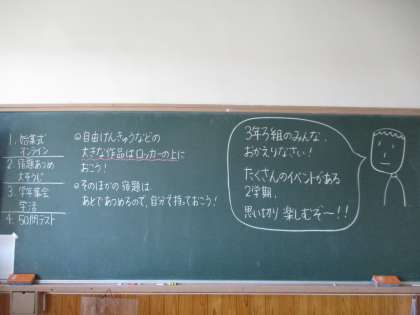 1. 始業式
オンライン
2. 宿題あつめ
大そうじ
3. 学年集会
学活
4. 50問テスト
◎自由けんきゅうなどの
大きな作品はロッカーの上に
おこう!
◎そのほかの宿題は
あとであつめるので、自分で持っておこう!
3年3組のみんな、
おかえりなさい!
たくさんのイベントがある
2学期、
思い切り楽しむぞ〜!!